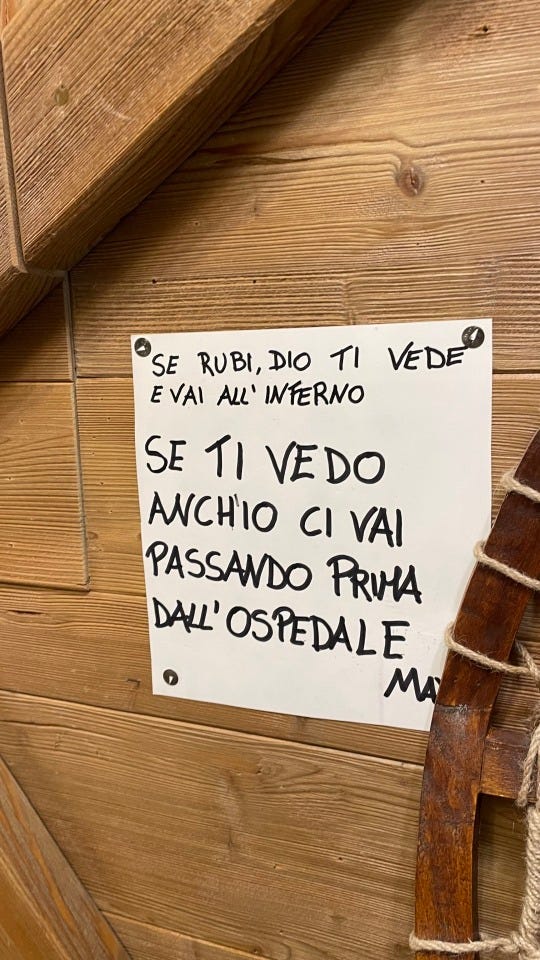 SE RUBI, DIO TI VEDE
E VAI ALL' INFERNO
SE TI VEDO
ANCH'IO CI VAI
PASSANDO PRIMA
DALL'OSPEDALE